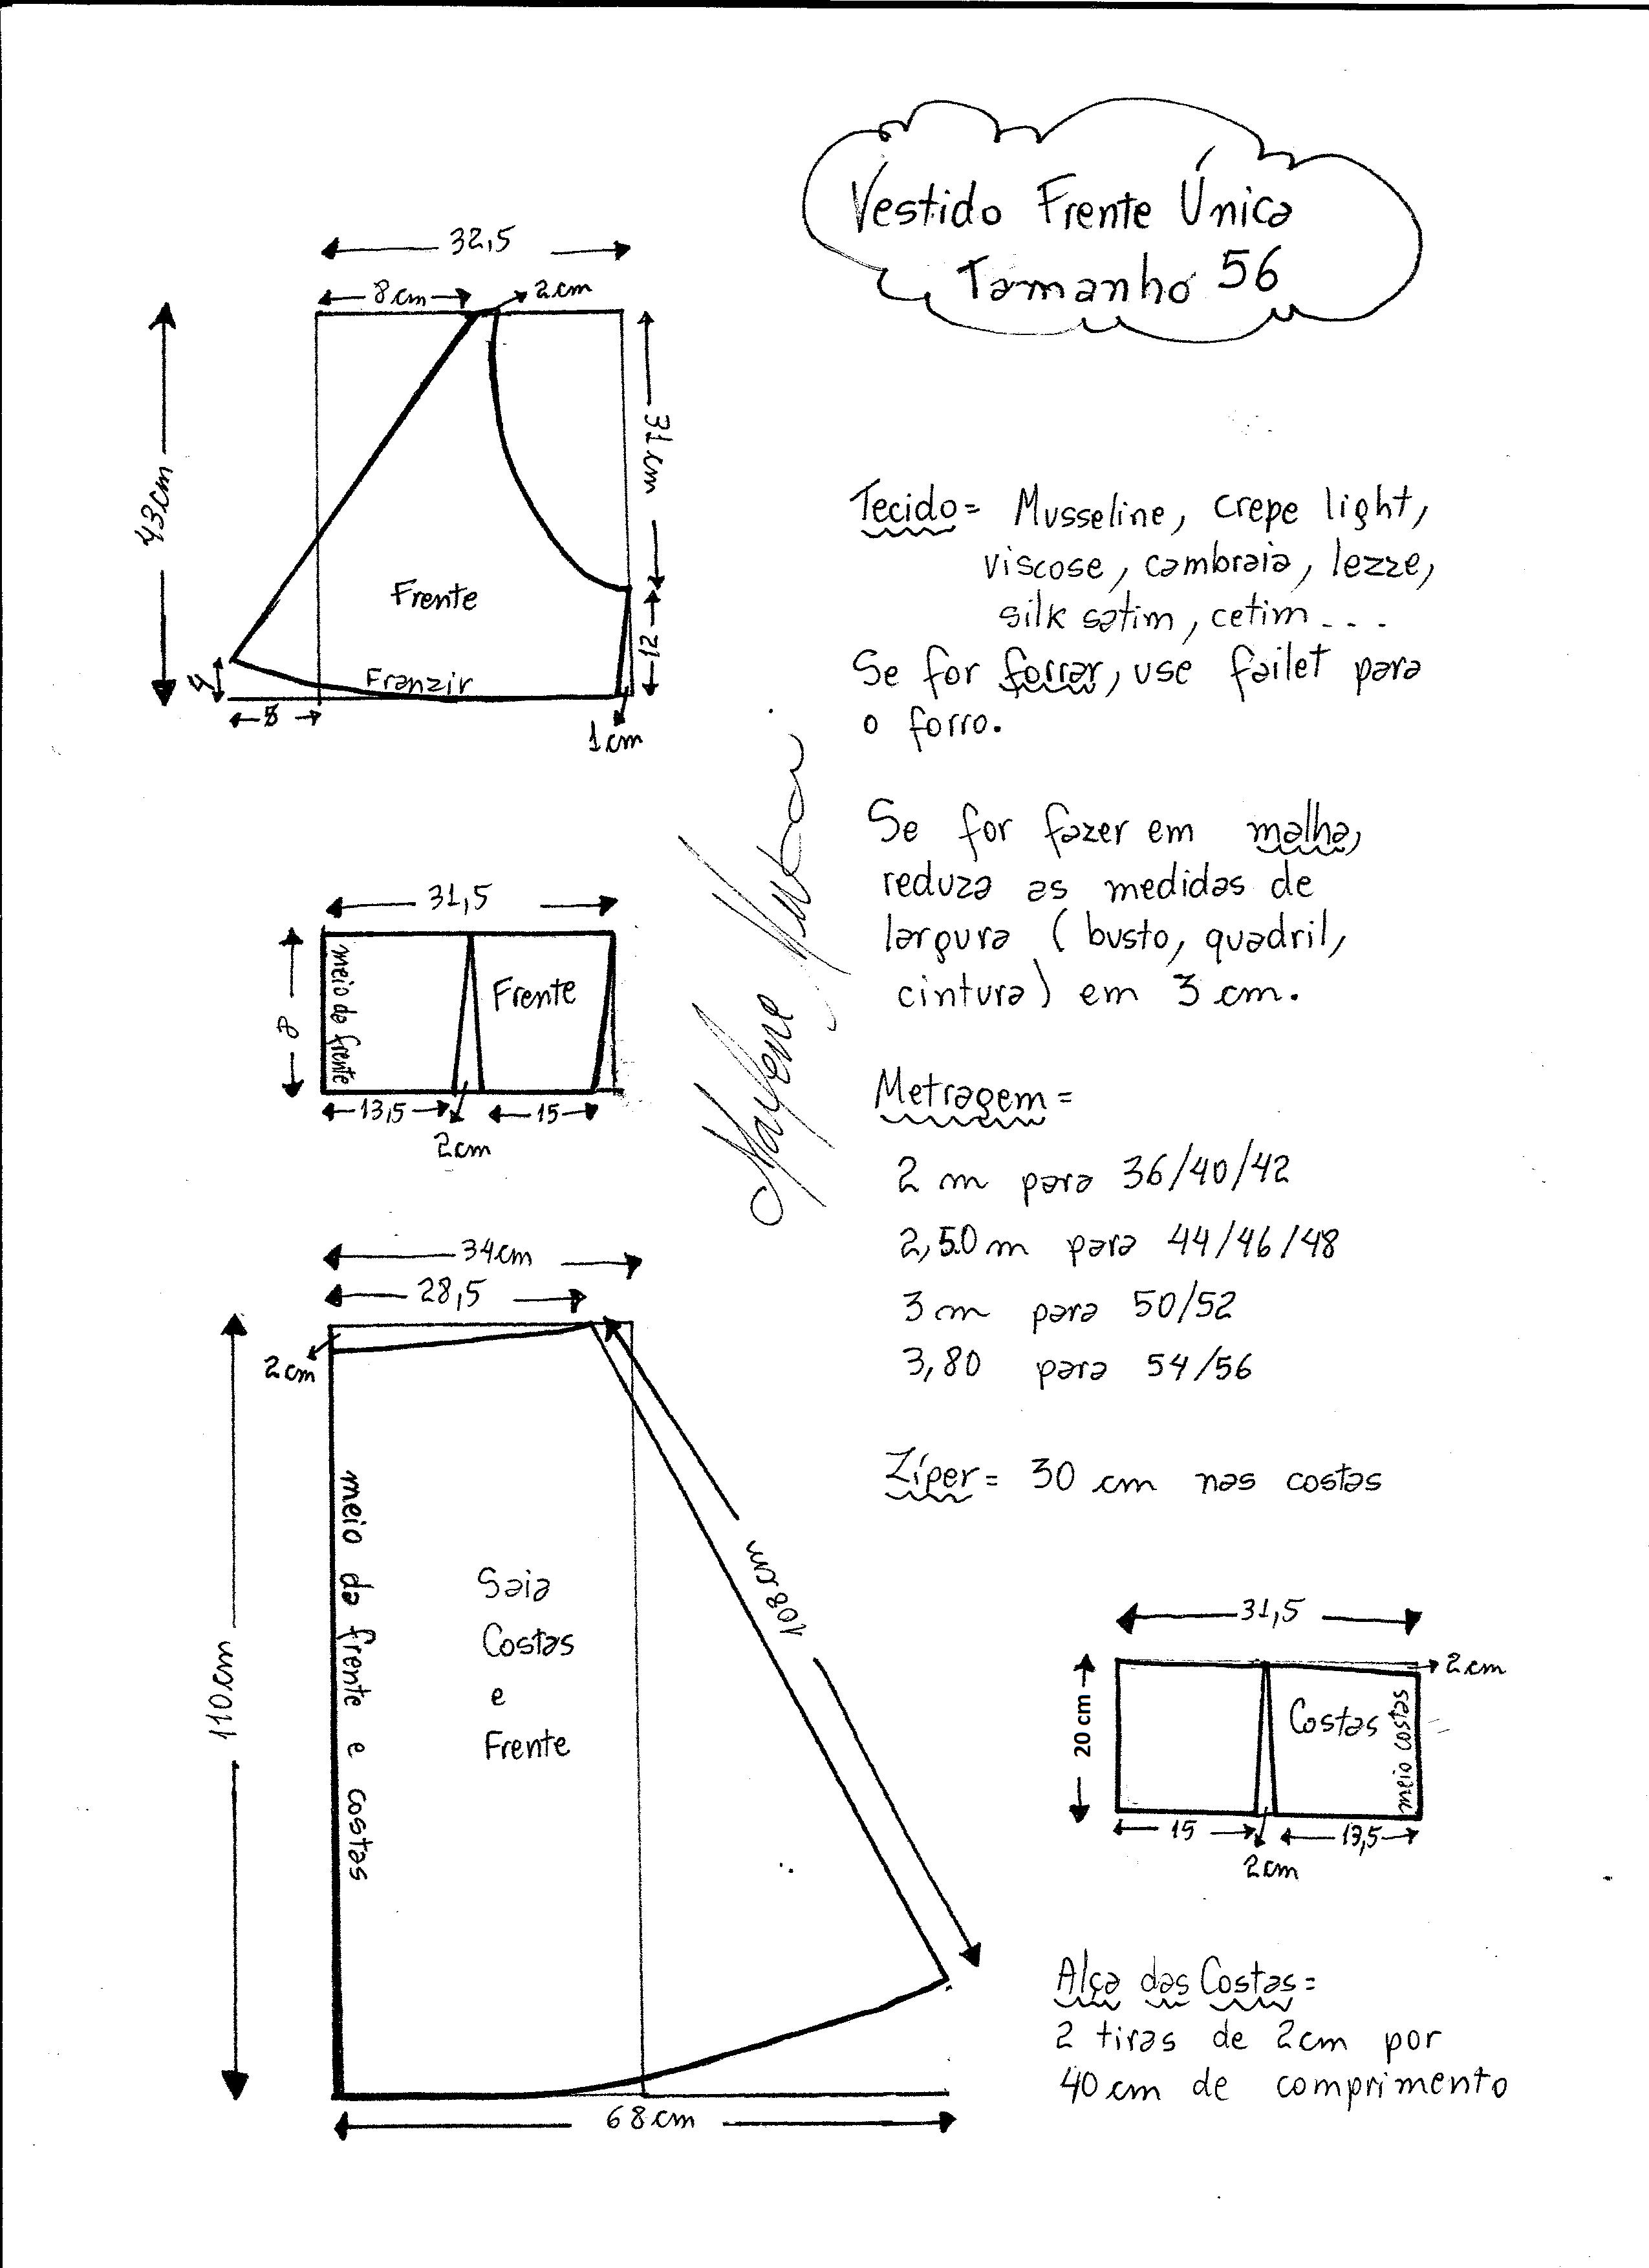 Vestido Frente Única
Tamanho 56
32,5
8cm
2cm
43cm
31cm
Frente
12
4
Franzir
8
1cm
Tecido = Musseline, crepe light,
viscose, cambraia, lezze,
silk satim, cetim ...
Se for forrar, use failet para
o forro.
Se for fazer em malha,
reduza as medidas de
largura (busto, quadril,
cintura) em 3 cm.
31,5
8
meio da frente
Frente
13,5
15
2cm
Marlene Mukai
Metragem =
2 m para 36/40/42
2,50 m para 44/46/48
3 m para 50/52
3,80 para 54/56
Zíper = 30 cm nas costas
34cm
28,5
2cm
110cm
meio da frente e costas
Saia
Costas
e
Frente
108cm
68cm
31,5
2cm
20 cm
Costas
meio costas
15
13,5
2cm
Alça das Costas =
2 tiras de 2cm por
40cm de comprimento